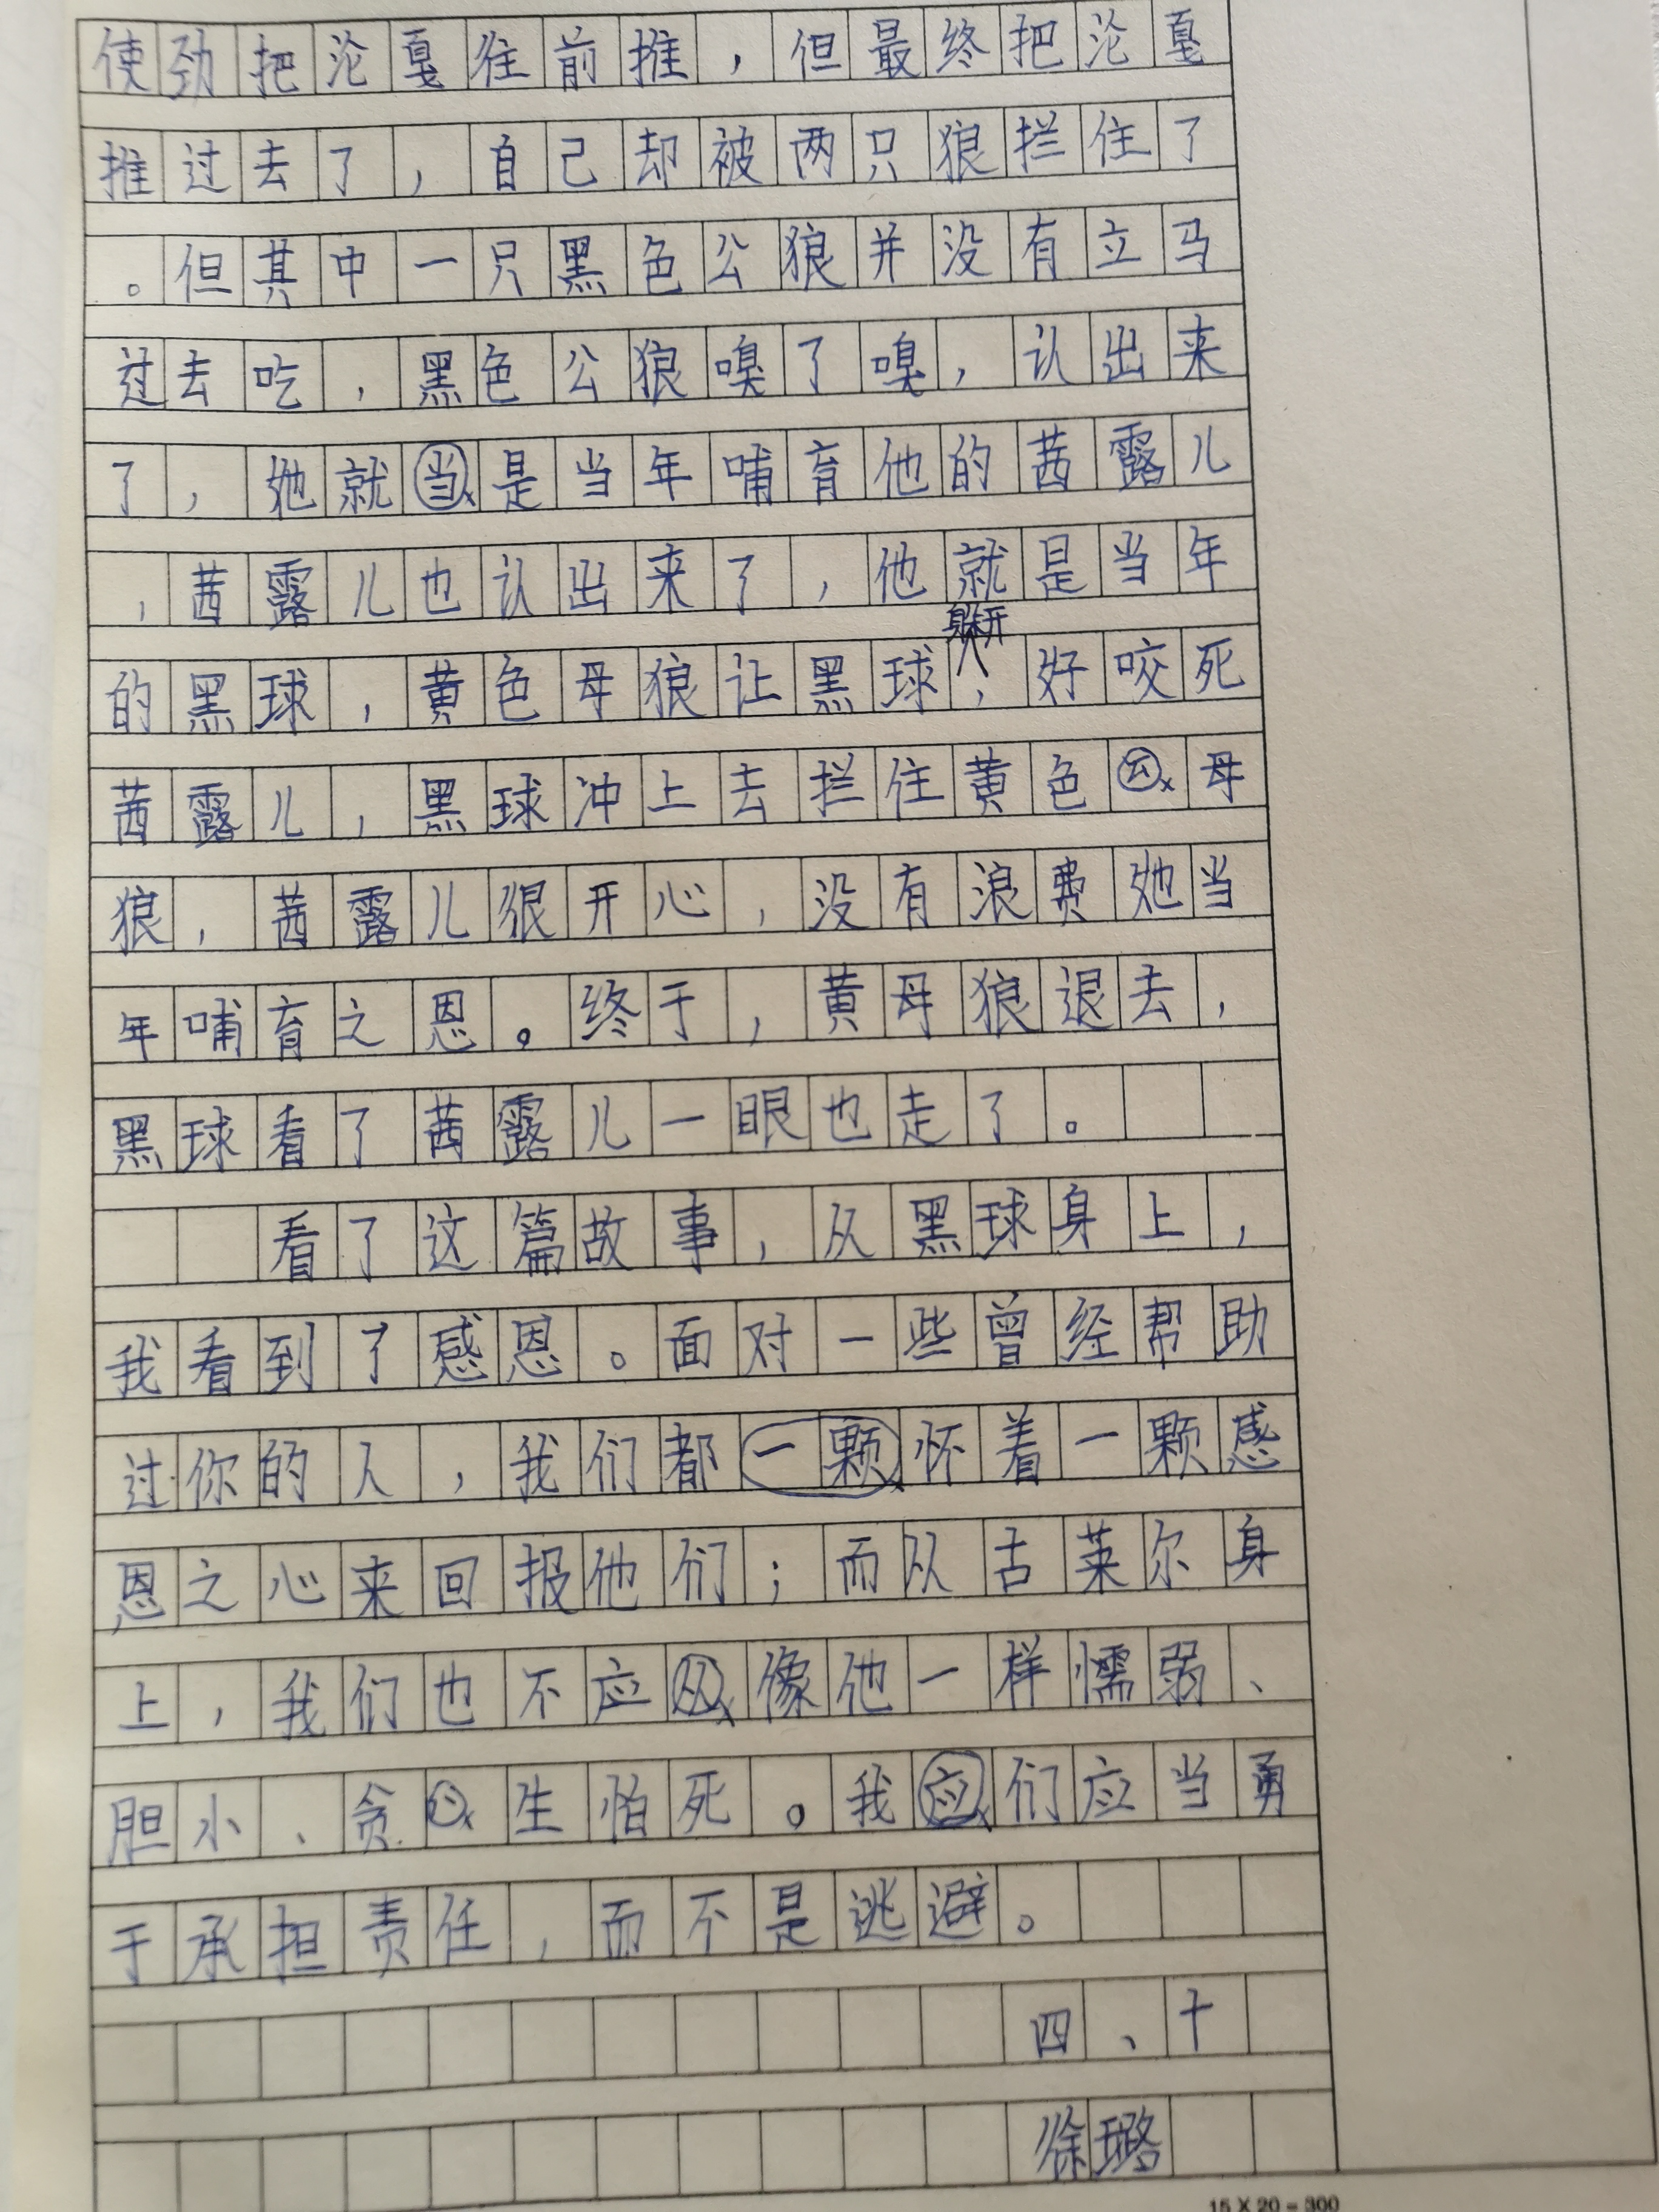 使劲把沦戛往前推，但最终把沦戛
推过去了，自己却被两只狼拦住了
。但其中一只黑色公狼并没有立马
过去吃，黑色公狼嗅了嗅，认出来
了，她就当是当年哺育他的茜露儿
，茜露儿也认出来了，他就是当年
躲开
的黑球，黄色母狼让黑球，好咬死
茜露儿，黑球冲上去拦住黄色公母
狼，茜露儿很开心，没有浪费她当
年哺育之恩。终于，黄母狼退去，
黑球看了茜露儿一眼也走了。
看了这篇故事，从黑球身上，
我看到了感恩。面对一些曾经帮助
过你的人，我们都一颗怀着一颗感
恩之心来回报他们；而从古莱尔身
上，我们也不应从像他一样懦弱、
胆小、贪生怕死。我应们应当勇
于承担责任，而不是逃避。
四、十
徐璐
15 X 20 = 300